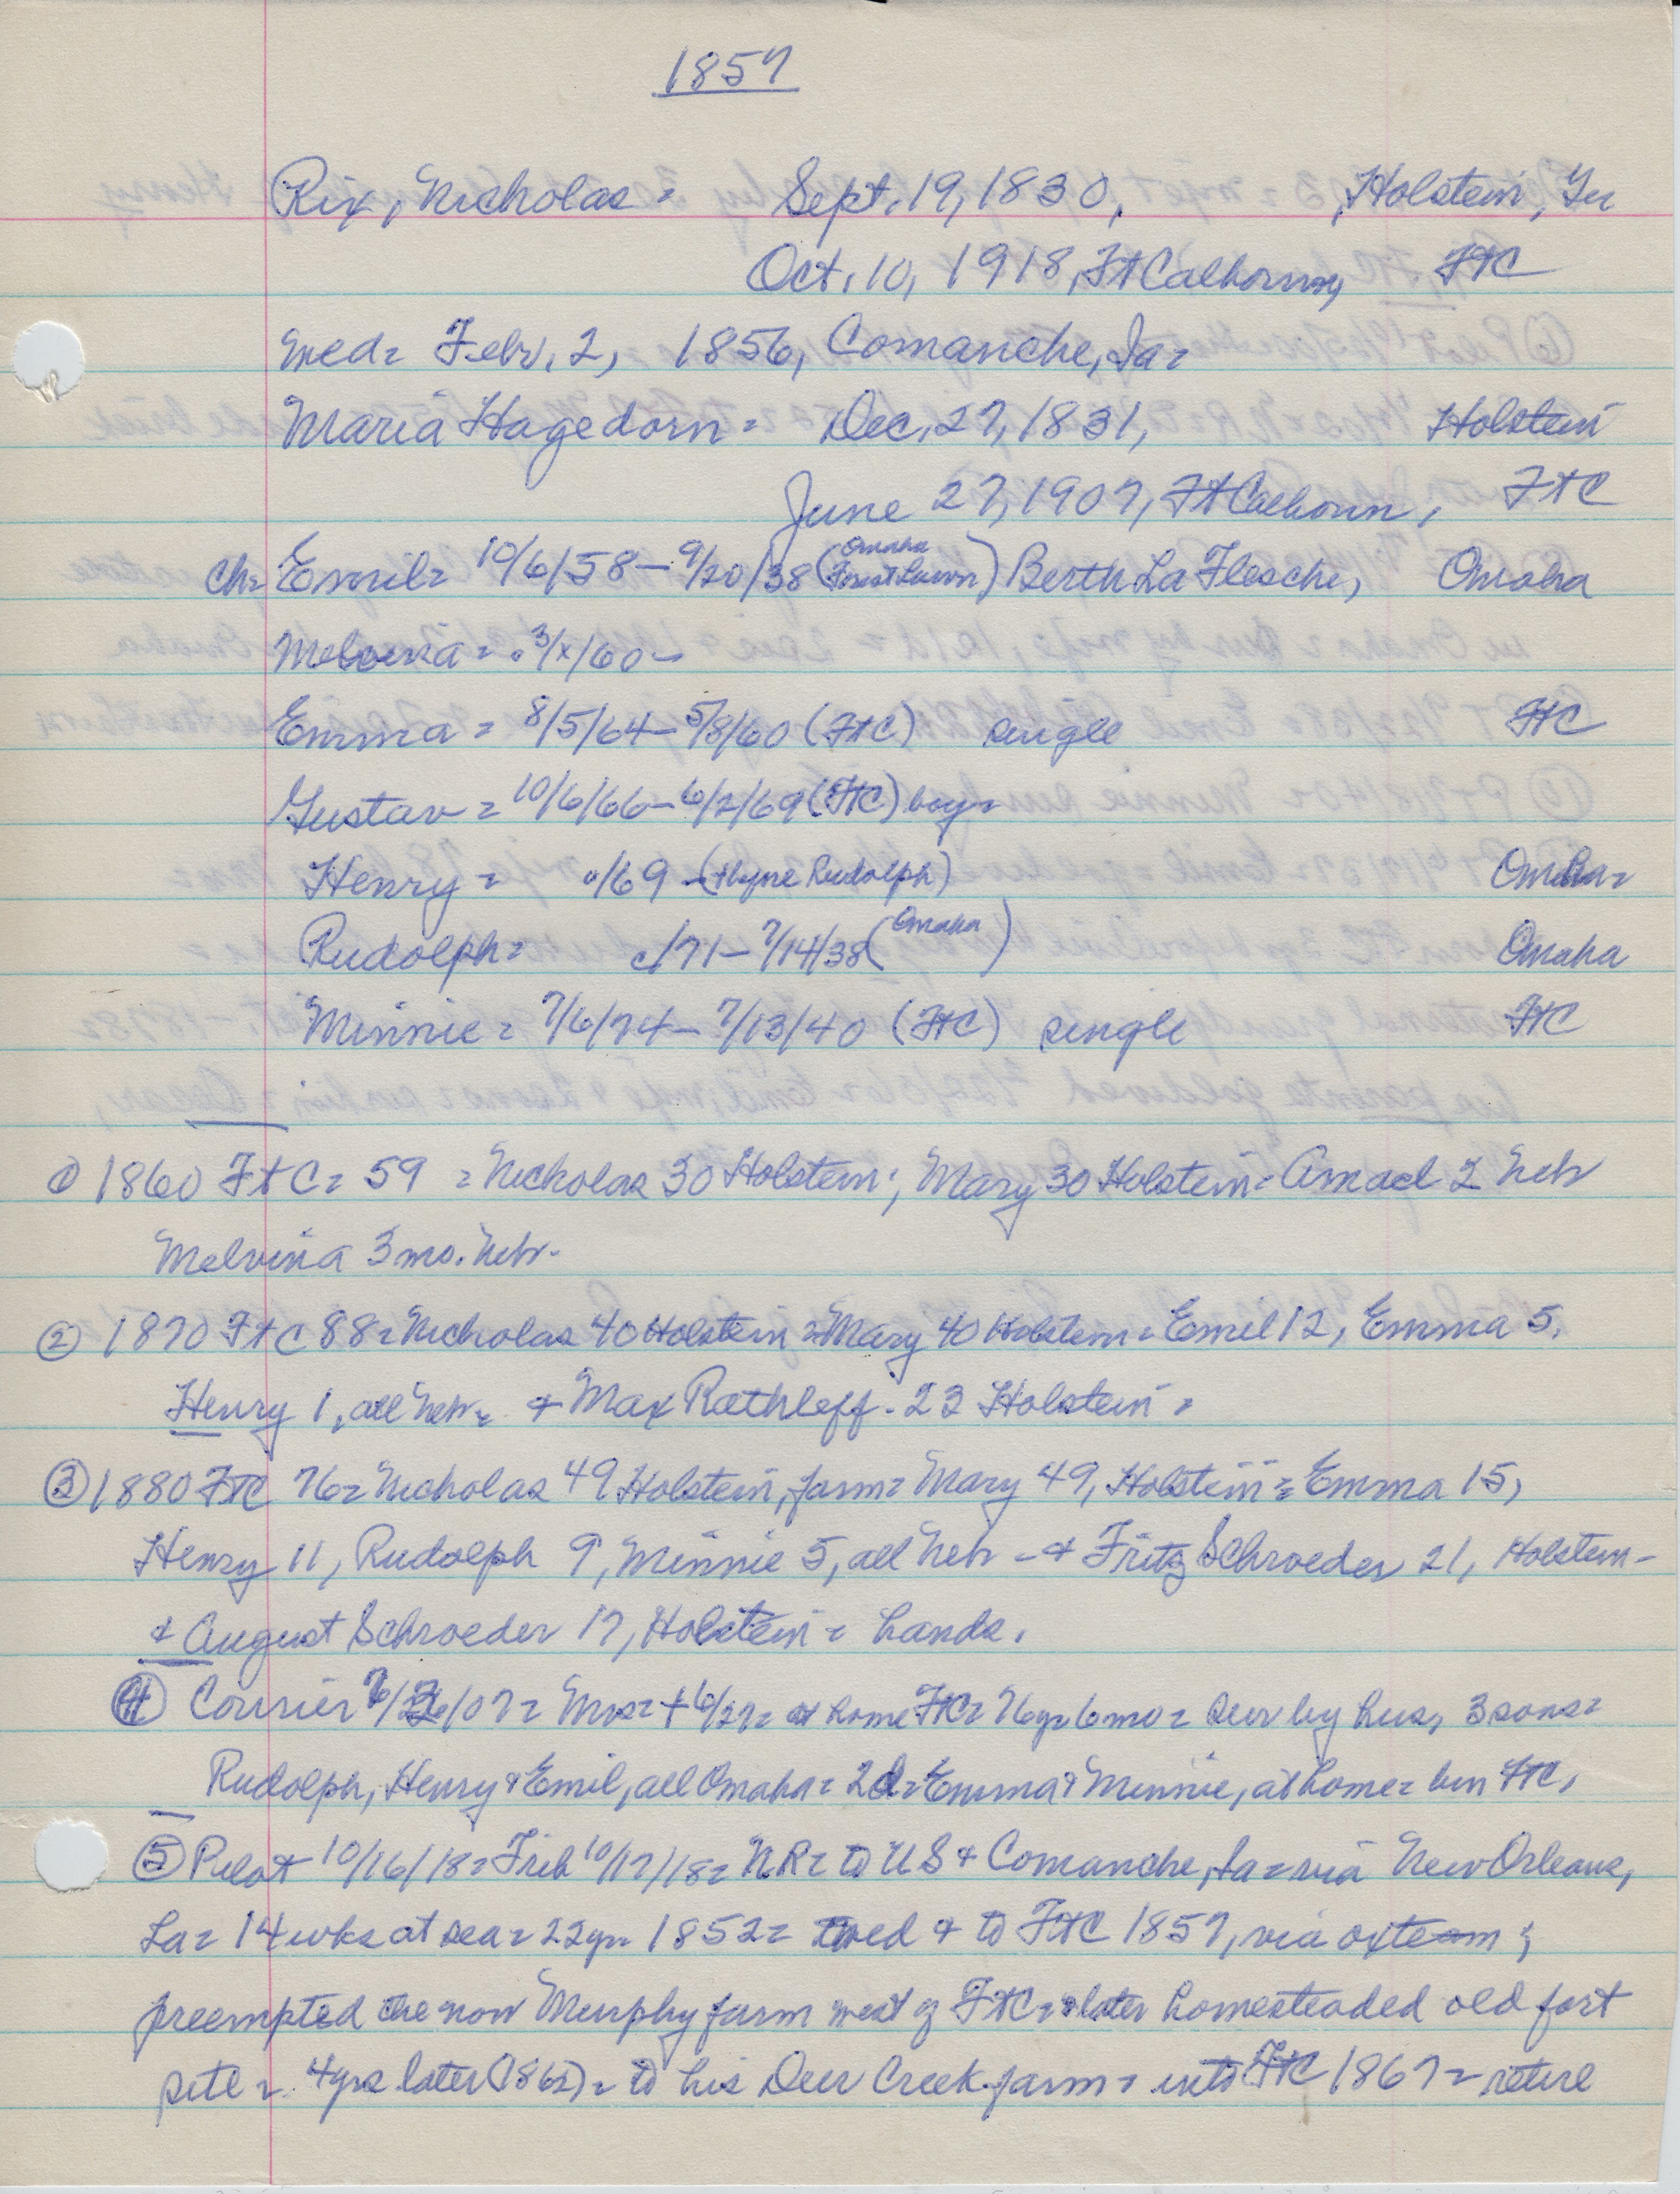 1857
Rix, Nicholas = Sept. 19, 1830, Holstein, Ger
Oct. 10, 1918, Ft Calhoun, FtC
wed = Febr. 2, 1856, Comanche, Ia =
Maria Hagedorn = Dec. 27, 1831, Holstein
June 27, 1907, Ft Calhoun, FtC
ch = Emil = 10/6/58 - 9/20/38 (Omaha Forest Lawn) Berth La Flesche, Omaha
Melvina = 3/x/60 -
Emma = 8/5/64 - 5/8/60 (FtC) single FtC
Gustav = 10/6/66 - 6/2/69 (FtC) boy =
Henry = c/69 - (thyne Rudolph) Omaha =
Rudolph = c/71 - 7/14/38 (Omaha) Omaha
Minnie = 7/6/74 - 7/13/40 (FtC) single FtC
① 1860 FtC = 59 = Nicholas 30 Holstein; Mary 30 Holstein = Amael 2 Neb
Melvina 3 mo. Neb.
② 1870 FtC 88 = Nicholas 40 Holstein = Mary 40 Holstein = Emil 12, Emma 5,
Henry 1, all Neb = + Max Rathleff - 23 Holstein =
③ 1880 FtC 76 = Nicholas 49 Holstein, farm = Mary 49, Holstein = Emma 15,
Henry 11, Rudolph 9, Minnie 5, all Neb - + Fritz Schroeder 21, Holstein -
+ August Schroeder 17, Holstein = hands.
④ Courier /07 = Mrs = + 6/27 = at home FtC = 76 yr 6 mo = surv by hus, 3 sons =
Rudolph, Henry & Emil, all Omaha = 2d = Emma & Minnie, at home = bur FtC,
⑤ Pilot 10/16/18 = Trib 10/17/18 = NR = to US + Comanche, Ia = via New Orleans,
La = 14 wks at sea = 22 yr = 1852 = wed + to FtC 1857, via oxteam;
preempted the now Murphy farm west of FtC = later homesteaded old fort
site = 4 yrs later (1862) = to his Deer Creek farm = into FtC 1867 = retire